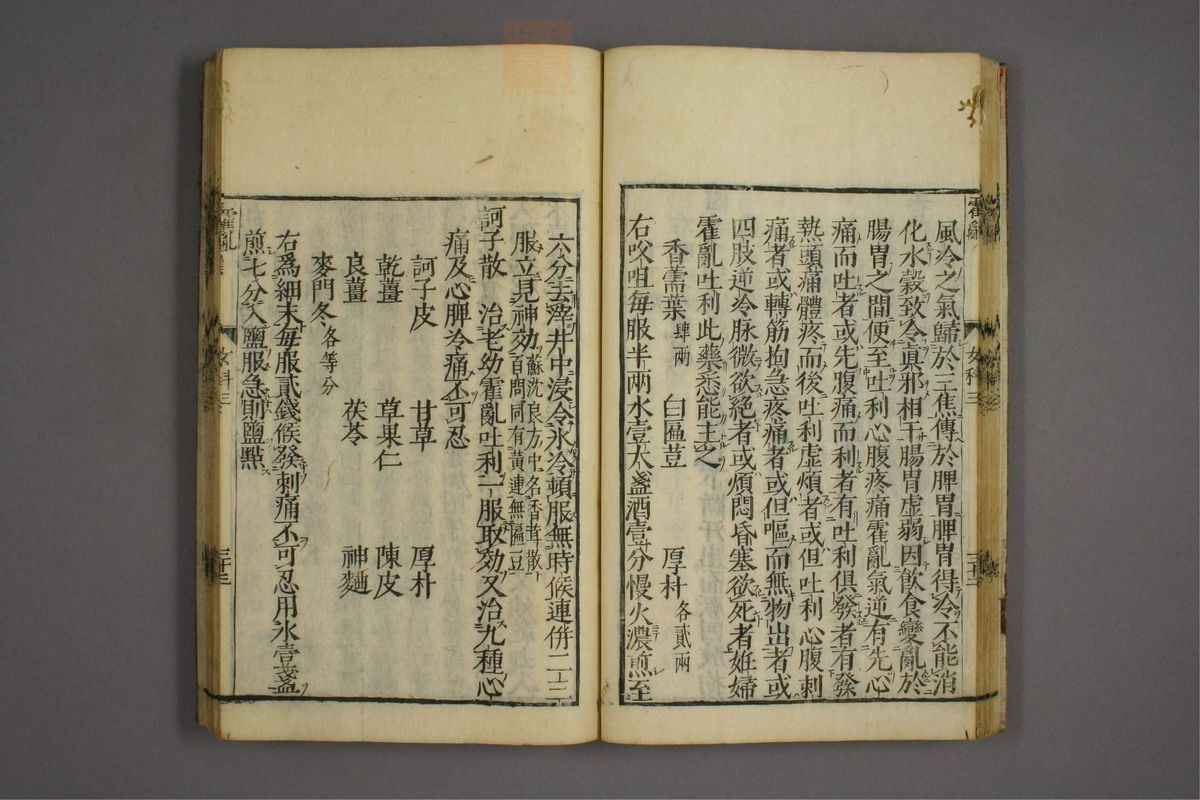 風冷之氣歸於三焦傳於脾胃脾胃得冷不能消
化水穀致令眞邪相干腸胃虛弱因飲食變亂於
腸胃之間便至吐利心腹疼痛霍亂氣逆有先心
痛而吐者或先腹痛而利者有吐利俱發者有發
熱頭痛體疼而後吐利虛煩者或但吐利心腹刺
痛者或轉筋拘急疼痛者或但嘔而無物出者或
四肢逆冷脉微欲絶者或煩悶昏塞欲死者姙婦
霍亂吐利此藥悉能主之
香薷葉肆兩 白匾荳 厚朴各貳兩
右㕮咀每服半兩水壹大盞酒壹分慢火濃煎至
霍亂
女科三
三十二
六分去滓井中浸令氷冷頓服無時候連併二三
服立見神効蘇沈良方中名香茸散
百問同有黃連無匾豆
訶子散 治老幼霍亂吐利一服取効又治九種心
痛及心脾冷痛不可忍
訶子皮 甘草 厚朴
乾薑 草果仁 陳皮
良薑 茯苓 神麯
麥門冬各等分
右爲細末每服貳錢候發刺痛不可忍用水壹盞
煎七分入鹽服急則鹽點
霍亂
女科三
三十三